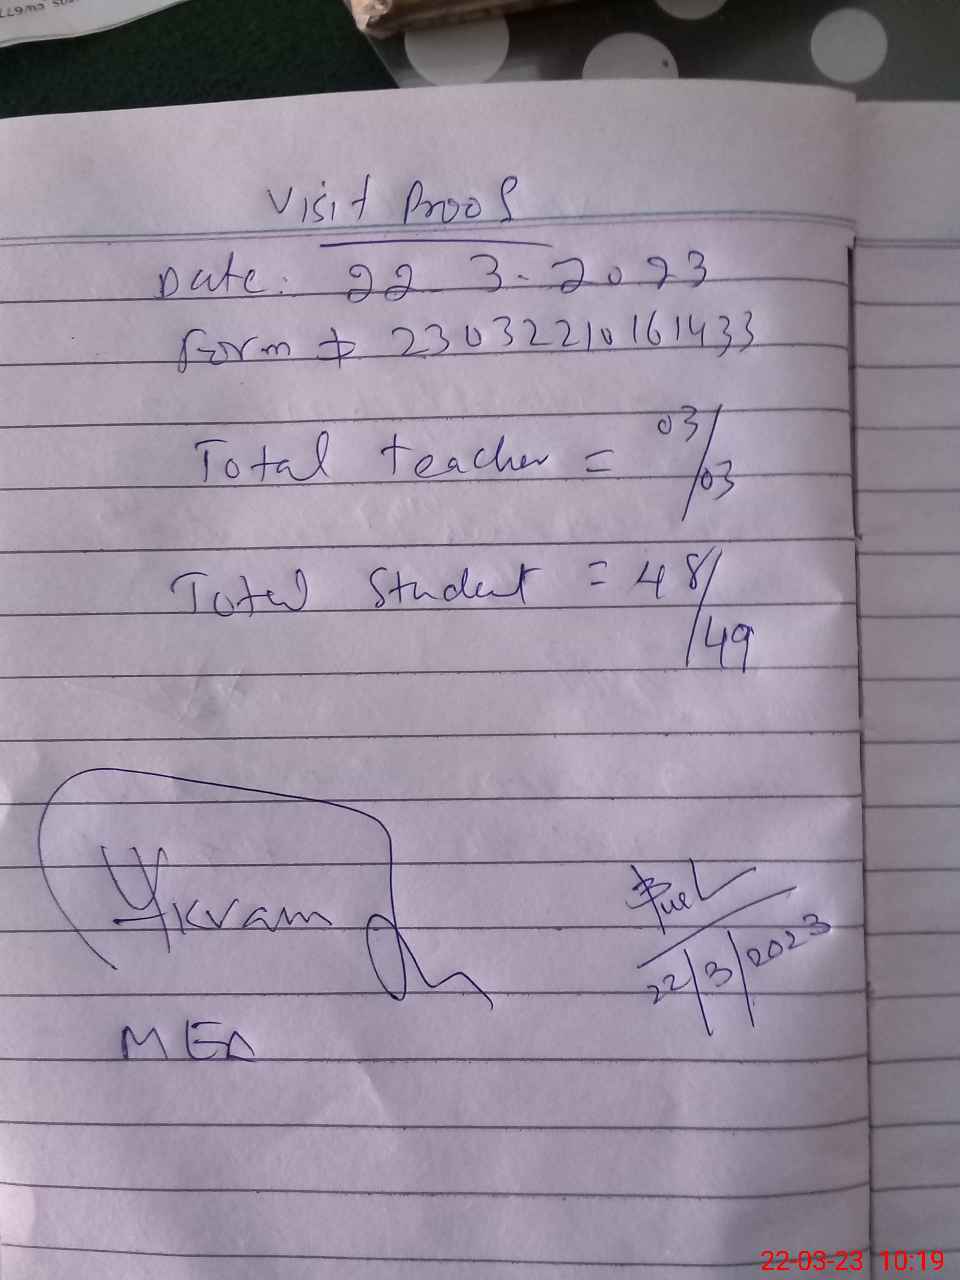 Visit Proof
Date: 22-3-2023
Form # 23032210161433
Total teacher = 03/03
Total Student = 48/49
Ykram
22/3/2023
MEA
22-03-23 10:19